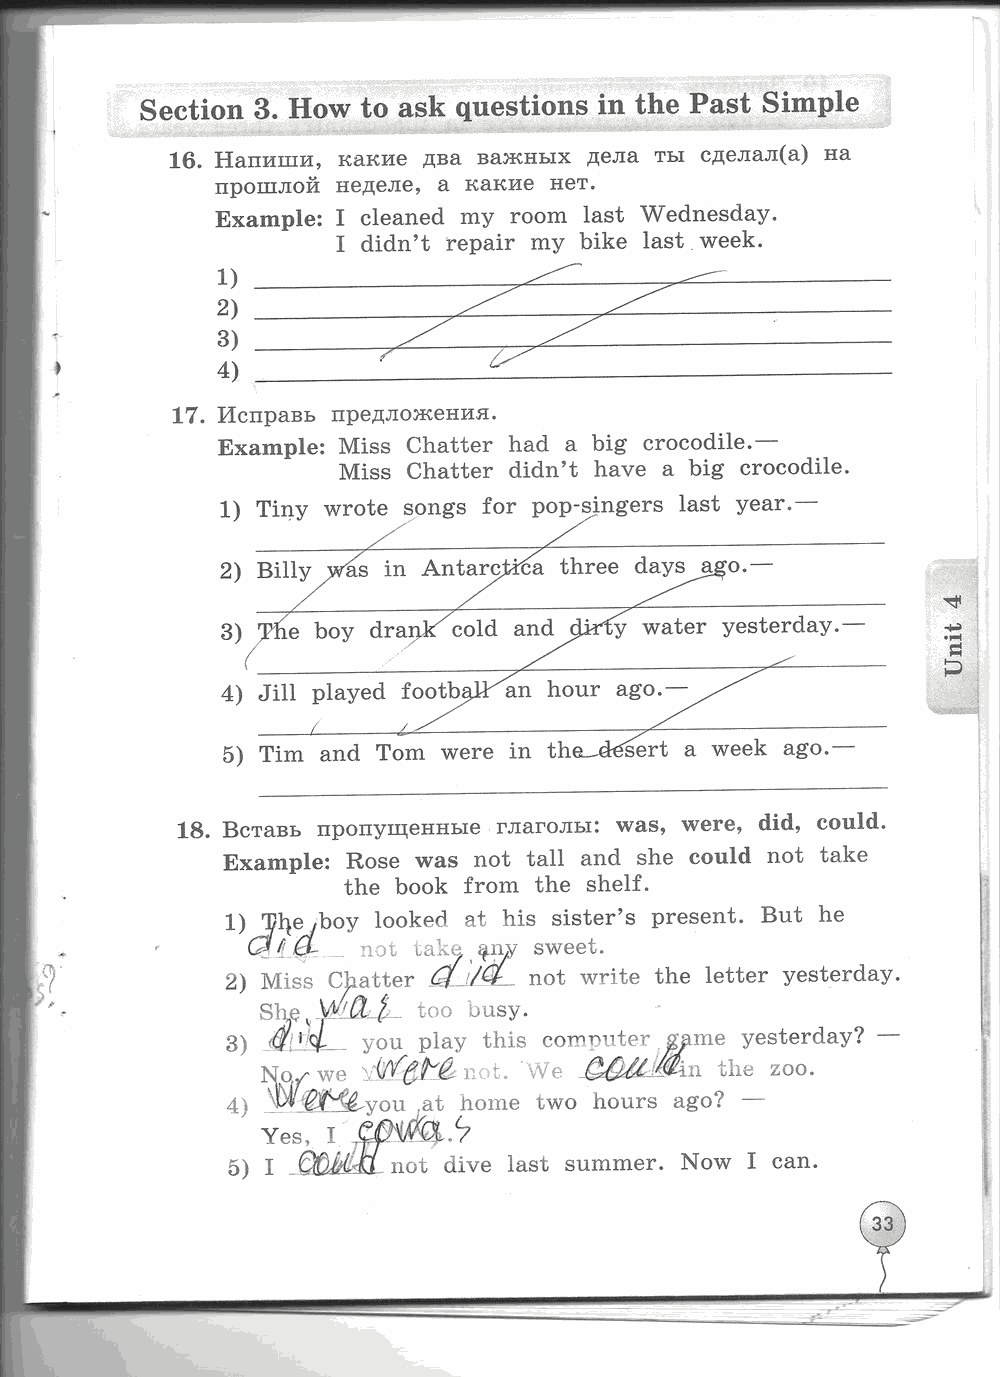 Section 3. How to ask questions in the Past Simple
16. Напиши, какие два важных дела ты сделал(а) на
прошлой неделе, а какие нет.
Example: I cleaned my room last Wednesday.
I didn't repair my bike last week.
1)
2)
3)
4)
17. Исправь предложения.
Example: Miss Chatter had a big crocodile.—
Miss Chatter didn't have a big crocodile.
1) Tiny wrote songs for pop-singers last year.—
2) Billy was in Antarctica three days ago.—
3) The boy drank cold and dirty water yesterday.—
4) Jill played football an hour ago.—
5) Tim and Tom were in the desert a week ago.—
Unit 4
18. Вставь пропущенные глаголы: was, were, did, could.
Example: Rose was not tall and she could not take
the book from the shelf.
1) The boy looked at his sister's present. But he
did not take any sweet.
2) Miss Chatter did not write the letter yesterday.
She was too busy.
3) did you play this computer game yesterday? —
No, we were not. We could in the zoo.
4) Were you at home two hours ago? —
Yes, I was.
5) I could not dive last summer. Now I can.
33